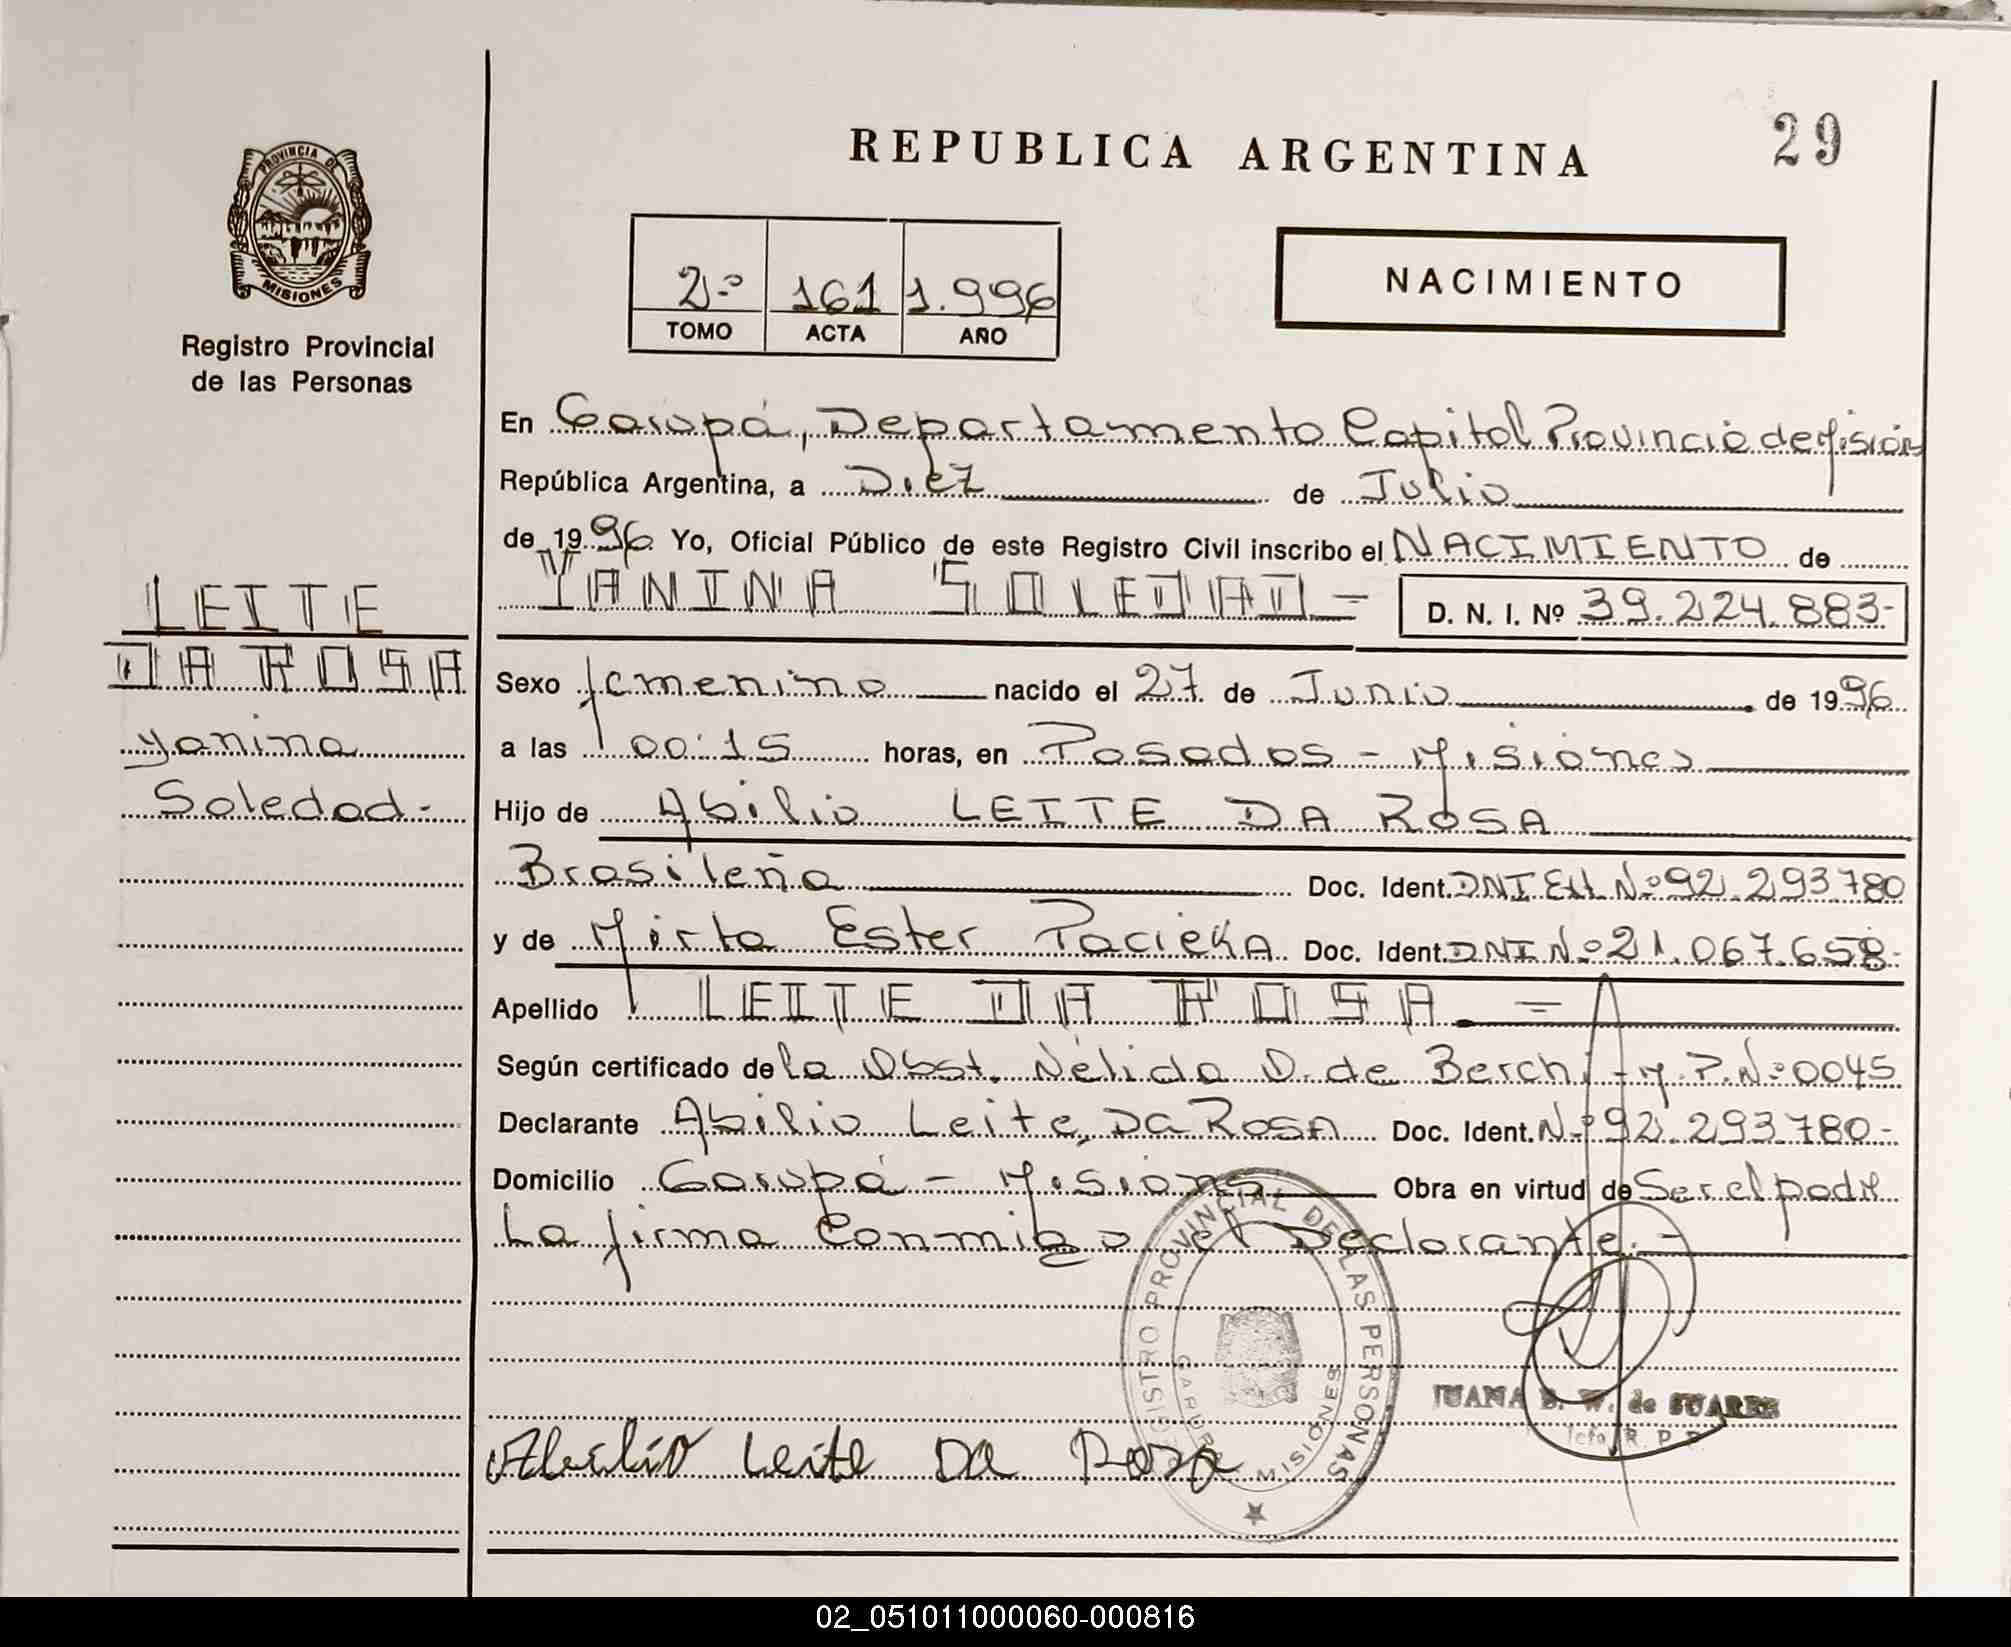 REPUBLICA ARGENTINA
29
PROVINCIA DE
MISIONES
Registro Provincial
de las Personas
2º 161 1.996
TOMO ACTA AÑO
NACIMIENTO
En Garupá, Departamento Capital Provincia de Mision
República Argentina, a Diez de Julio
de 1996 Yo, Oficial Público de este Registro Civil inscribo el NACIMIENTO de
YANINA SOLEDAD = D. N. I. Nº 39.224.883-
LEITE
DA ROSA
Yanina
Soledad-
Sexo femenino nacido el 27 de Junio de 1996
a las 00:15 horas, en Posadas - Misiones
Hijo de Abilio LEITE DA ROSA
Brasileña Doc. Ident. DNI EX Nº 92.293780
y de Mirta Ester Pacieka Doc. Ident. DNI Nº 21.067.658-
Apellido LEITE DA ROSA =
Según certificado de la Obst. Nélida D. de Berchi - M.P. Nº 0045
Declarante Abilio Leite DA ROSA Doc. Ident. Nº 92.293.780-
Domicilio Garupá - Misiones Obra en virtud de Ser el padre
La firma Conmigo el Declarante. -
REGISTRO PROVINCIAL DE LAS PERSONAS
GARUPA MISIONES
JUANA B. W. de SUAREZ
Jefe R. P. P.
Abilio Leite DA Rosa
02_051011000060-000816